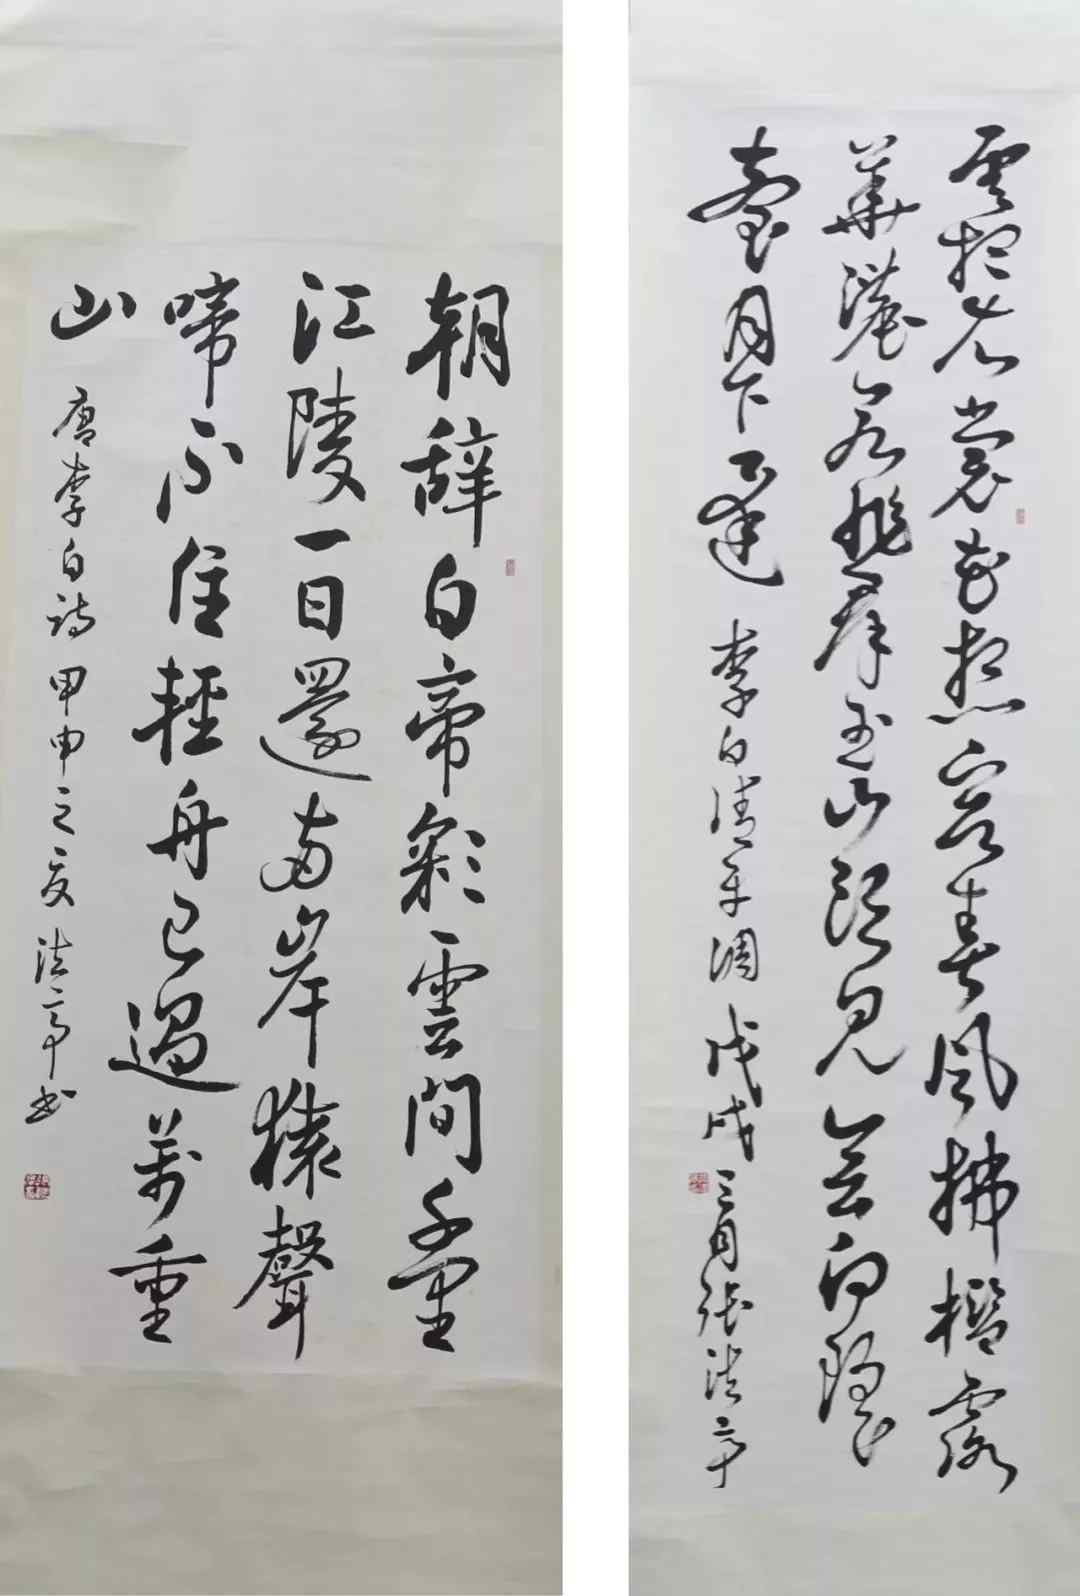 朝辭白帝彩雲間千里
江陵一日還兩岸猿聲
啼不住輕舟已過萬重
山
唐李白詩甲申之夏法亭书
雲想衣裳花想容春風拂檻露
華濃若非群玉山頭見會向瑤
臺月下逢
李白清平調戊戌三月張法亭